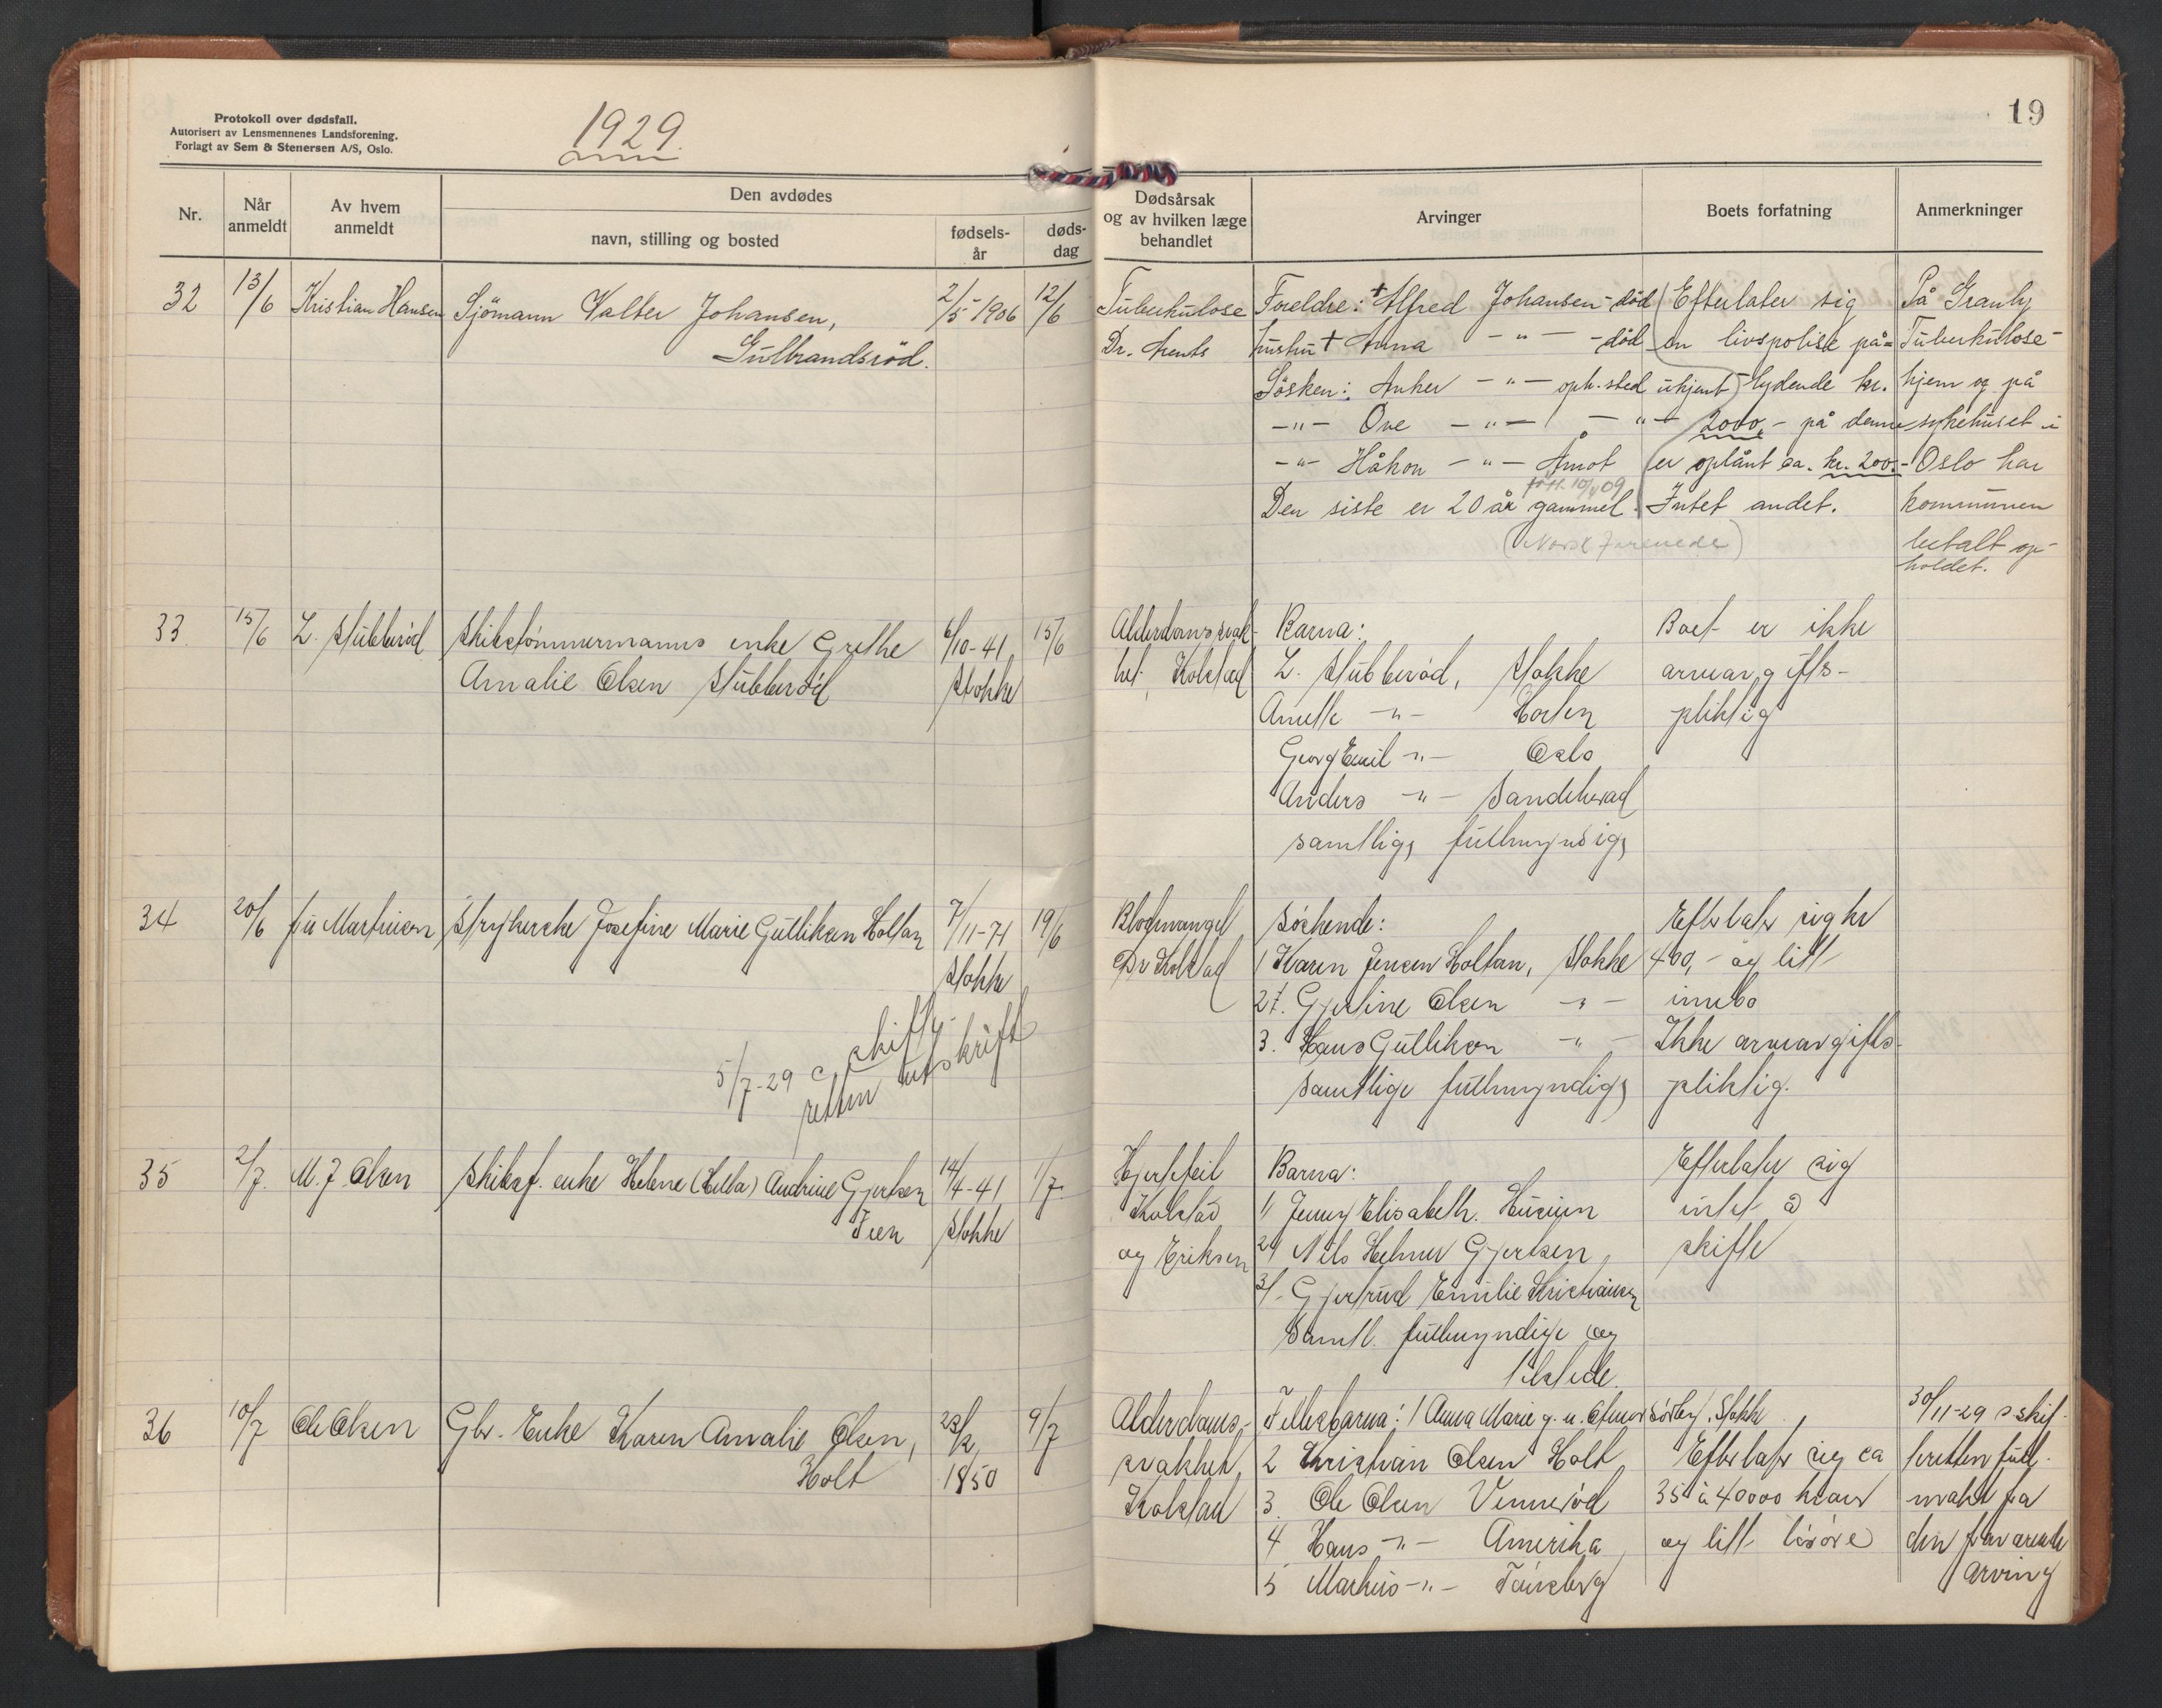 Protokoll over dødsfall.
Autorisert av Lensmennenes Landsforening.
Forlagt av Sem & Stenersen A/S, Oslo.
1929.
19
Nr.
Når anmeldt
Av hvem anmeldt
Den avdødes
navn, stilling og bosted
fødsels-år
døds-dag
Dødsårsak og av hvilken læge behandlet
Arvinger
Boets forfatning
Anmerkninger
32
13/6
Kristian Hansen
Sjömann Valter Johansen,
Gulbrandsröd.
2/5 1906
12/6
Tuberkulose
Dr. Arents
Foreldre: + Alfred Johansen - död
hustru + Anna -"- - död
Søsken: Anker -"- oph. sted ukjent
-"- Ove -"- -"-
-"- Håkon -"- Åmot
född 10/4 09
Den siste er 20 år gammel.
(Norsk Forenede)
Efterlater sig
en livspolise på-
lydende kr.
2000,- på denne
er oplånt ca. kr. 200.-
Intet andet.
På Granly
Tuberkulose-
hjem og på
sykehuset i
Oslo har
kommunen
betalt op-
holdet.
33
15/6
L. Stubberöd
Skibstömmermanns enke Grethe
Amalie Olsen Stubberöd
6/10-41
Stokke
15/6
Alderdomssvak-
het, Kolstad
Barna:
L. Stubberöd, Stokke
Anette -"- Horten
Georg Emil -"- Oslo
Anders -"- Sandeherad
samtlige fullmyndige
Boet er ikke
arveavgifts-
pliktig
34
20/6
fru Martinsen
Strykerske Josefine Marie Gulliksen Holtan
7/11-71
Stokke
19/6
5/7-29 skifte-
retten utskrift
Blodmangel
Dr Kolstad
Søskende:
1 Karen Jensen Holtan, Stokke
2. Gjertine Olsen -"-
3. Hans Gulliksen -"-
Samtlige fullmyndige
Efterlater sig kr
400,- og litt
innbo
Ikke arveavgifts-
pliktig.
35
2/7.
M. J. Olsen
Skibsf. enke Helene (Hella) Andrine Gjertsen
Feen
14/4-41
Stokke
1/7.
Hjertefeil
Kolstad
og Eriksen
Barna:
1/ Jenny Elisabeth
2/ Nils Helmer Gjertsen,
3/ Gjertrud Emilie Kristiansen
Samtl. fullmyndige og
tilstede.
Efterlater sig
intet å
skifte
36
10/7
Ole Olsen
Gbr. Enke Karen Amalie Olsen,
Holt
1850
9/7
Alderdoms-
svakhet
Kolstad
Fellesbarna: 1 Anna Marie g. m. Sörby, Stokke
2 Kristian Olsen Holt
3. Ole Olsen Vennerød
4 Hans -"- Amerika
5 Markus -"- Tönsberg
Efterlater sig ca
35 à 40000 kroner
og litt lösöre
30/11-29 s. skif-
teretten full-
makt fra
den fraværende
arving